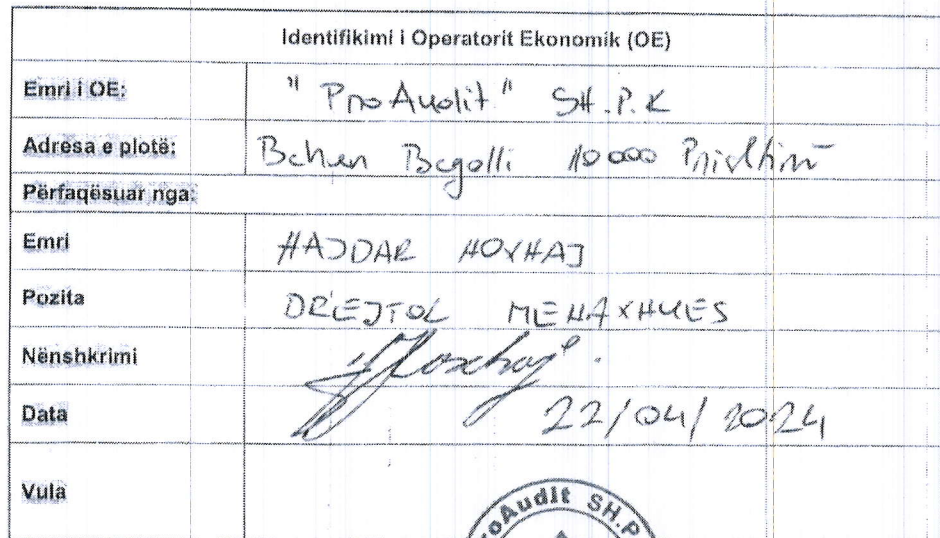 Identifikimi i Operatorit Ekonomik (OE)
Emri i OE: "ProAudit" SH.P.K
Adresa e plotë: Behen Begolli 10000 Prishtinë
Përfaqësuar nga:
Emri HAJDAR HOXHAJ
Pozita DREJTOR MENAXHUES
Nënshkrimi Hoxhaj
Data 22/04/2024
Vula
ProAudit SH.P